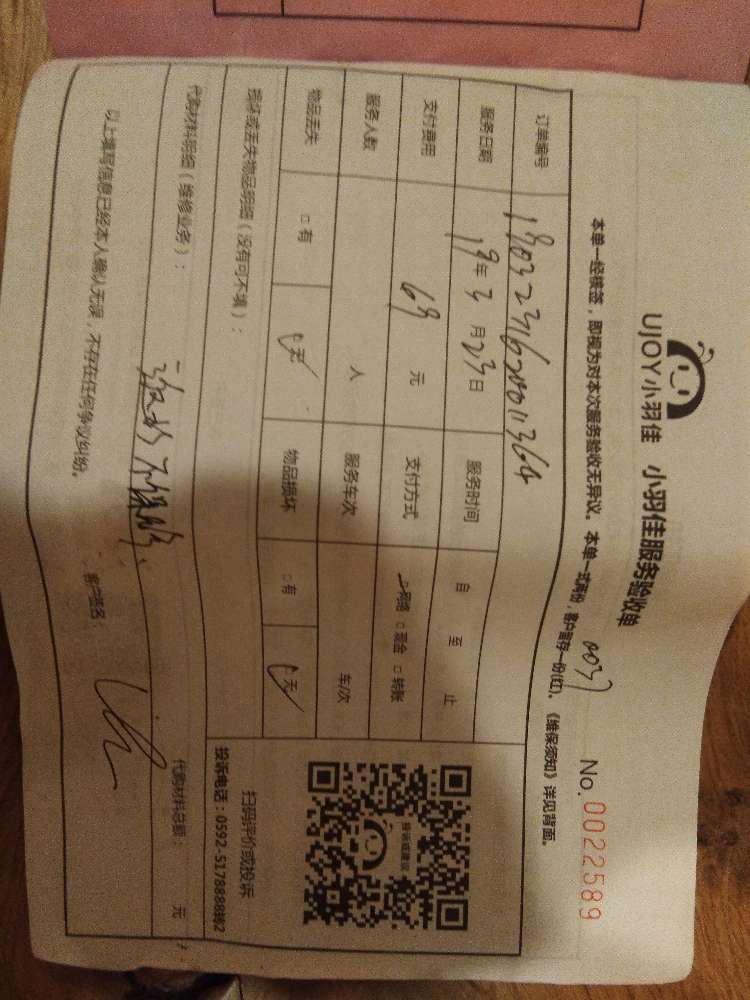 UJOY小羽佳 小羽佳服务验收单
No. 0022589
本单一经核签，即视为对本次服务验收无异议。本单一式两份，客户留存一份(红)。《维保须知》详见背面。
订单编号
服务日期 19年3月23日 服务时间 自 至 止
支付费用 69 元 支付方式 □网络 □现金 □转账
服务人数 人 服务车次 车/次
物品丢失 □有 □无 物品损坏 □有 □无
损坏或丢失物品明细（没有可不填）：
扫码评价或投诉
投诉电话：0592-5178888转2
代购材料明细（维修业务）： 代购材料总额： 元
以上填写信息已经本人确认无误，不存在任何争议纠纷。 客户签名：